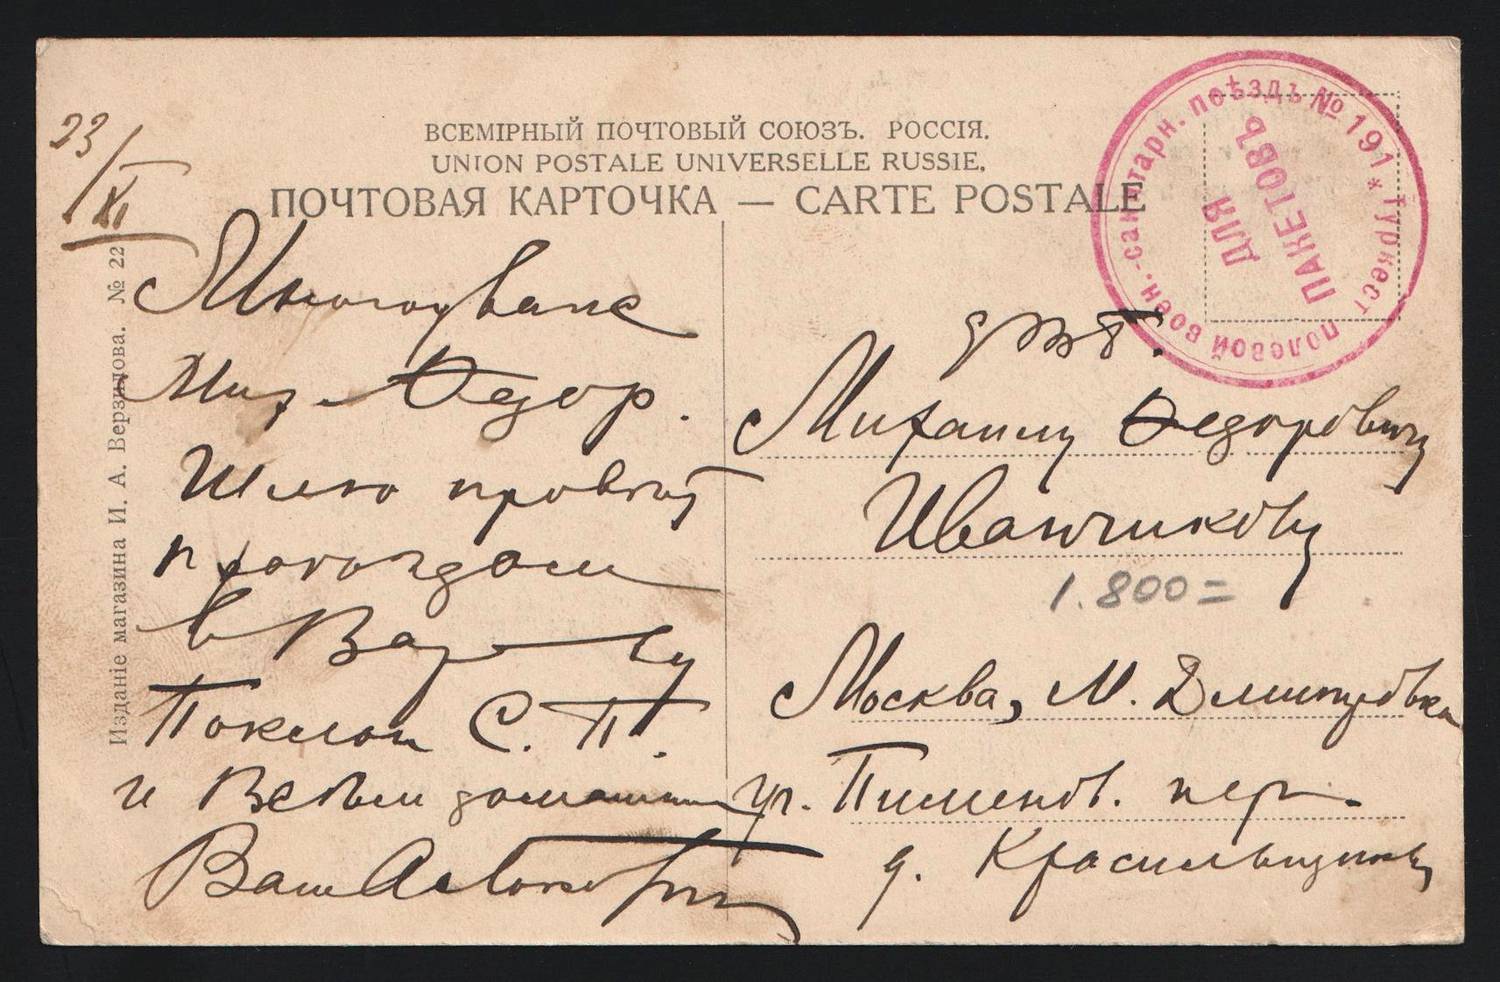 23/XI
ВСЕМІРНЫЙ ПОЧТОВЫЙ СОЮЗЪ. РОССІЯ.
UNION POSTALE UNIVERSELLE RUSSIE.
ПОЧТОВАЯ КАРТОЧКА — CARTE POSTALE
Туркест. полевой воен.-санитарн. поѣздъ № 191 *
ДЛЯ
ПАКЕТОВЪ
Изданіе магазина И. А. Верзилова. № 22
Многоуваж
Мих. Ѳедор.
Шлю привѣт
проездом
в
Поклон С. П.
и Всѣм домашним
Ваш
Михаилу Ѳедоровичу
Иванчикову
1.800=
Москва, М. Дмитровка
уг. Пименов. пер.
д. Красильщикову